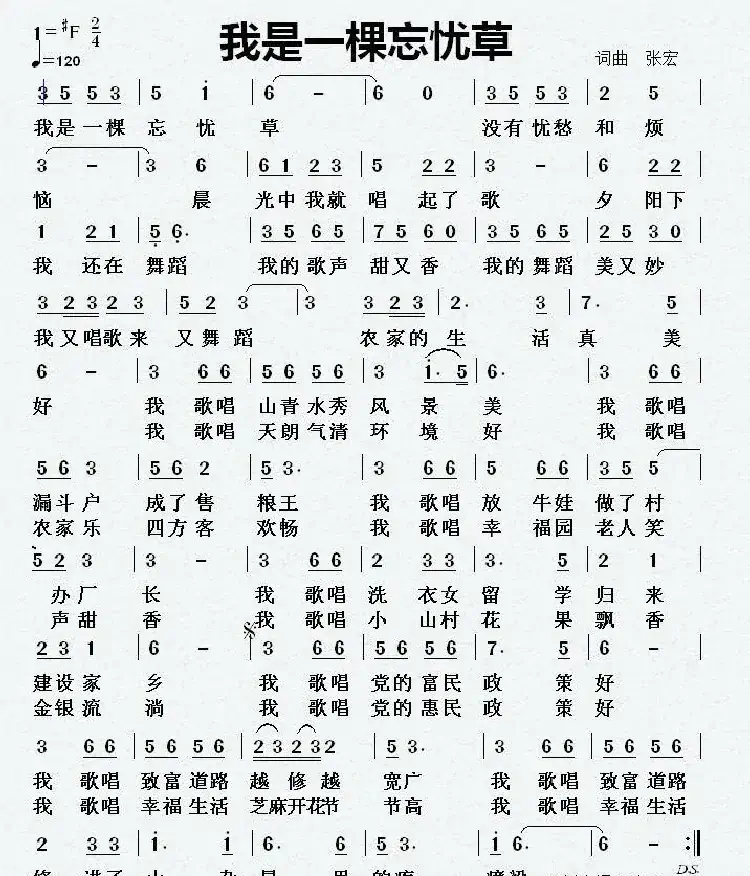 1=#F 2/4
♩=120
我是一棵忘忧草
词曲 张宏
3 5 5 3 | 5 i | 6 - | 6 0 | 3 5 5 3 | 2 5 |
我是一棵 忘 忧 草 没有忧愁 和 烦
3 - | 3 6 | 6 1 2 3 | 5 2 2 | 3 - | 6 2 2 |
恼 晨 光中我就 唱 起了 歌 夕 阳下
1 2 1 | 5 6. | 3 5 6 5 | 7 5 6 0 | 3 5 6 5 | 2 5 3 0 |
我 还在 舞蹈 我的歌声 甜又香 我的舞蹈 美又妙
3 2 3 2 3 | 5 2 3 | 3 3 2 3 | 2. 3 | 7. 5 |
我又唱歌来 又舞蹈 农家的 生 活 真 美
6 - | 3 6 6 | 5 6 5 6 | 3 1. 5 | 6. | 3 6 6 |
好 我 歌唱 山青水秀 风 景 美 我 歌唱
我 歌唱 天朗气清 环 境 好 我 歌唱
5 6 3 | 5 6 2 | 5 3. | 3 6 6 | 5 6 6 | 3 5 5 |
漏斗户 成了售 粮王 我 歌唱 放 牛娃 做了村
农家乐 四方客 欢畅 我 歌唱 幸 福园 老人笑
5 2 3 | 3 - | 3 6 6 | 2 3 3 | 3. 5 | 2 1 |
办厂 长 我 歌唱 洗 衣女 留 学 归 来
声甜 香 我 歌唱 小 山村 花 果 飘 香
2 3 1 | 6 - | 3 6 6 | 5 6 5 6 | 7. 5 | 6 - |
建设家 乡 我 歌唱 党的富民 政 策 好
金银流 淌 我 歌唱 党的惠民 政 策 好
3 6 6 | 5 6 5 6 | 2 3 2 3 2 | 5 3. | 3 6 6 | 5 6 5 6 |
我 歌唱 致富道路 越 修 越 宽广 我 歌唱 致富道路
我 歌唱 幸福生活 芝麻开花节 节高 我 歌唱 幸福生活
2 3 3 | i. i | 6. 6 | 5 3. | i 6. | 6 - :||
D.S.